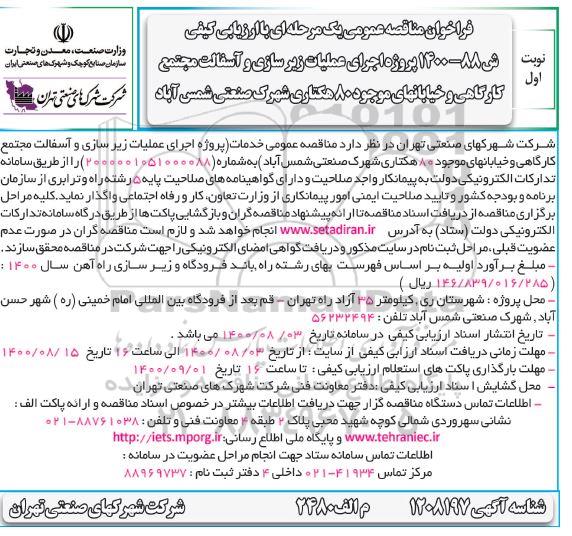 فراخوان مناقصه عمومی یک مرحله ای با ارزیابی کیفی
ش ۸۸-۱۴۰۰ پروژه اجرای عملیات زیر سازی و آسفالت مجتمع
کارگاهی و خیابانهای موجود ۸۰ هکتاری شهرک صنعتی شمس آباد
نوبت
اول
وزارت صنعت، معدن و تجارت
سازمان صنایع کوچک و شهرک های صنعتی ایران
شرکت شهرک های صنعتی تهران
شرکت شهرکهای صنعتی تهران در نظر دارد مناقصه عمومی خدمات(پروژه اجرای عملیات زیر سازی و آسفالت مجتمع
کارگاهی و خیابانهای موجود ۸۰ هکتاری شهرک صنعتی شمس آباد) به شماره (۲۰۰۰۰۰۱۰۵۱۰۰۰۰۸۸) را از طریق سامانه
تدارکات الکترونیکی دولت به پیمانکار واجد صلاحیت و دارای گواهینامه های صلاحیت پایه ۵ رشته راه و ترابری از سازمان
برنامه و بودجه کشور و تایید صلاحیت ایمنی امور پیمانکاری از وزارت تعاون، کار و رفاه اجتماعی واگذار نماید.کلیه مراحل
برگزاری مناقصه از دریافت اسناد مناقصه تا ارائه پیشنهاد مناقصه گران و بازگشایی پاکت ها از طریق درگاه سامانه تدارکات
الکترونیکی دولت (ستاد) به آدرس www.setadiran.ir انجام خواهد شد و لازم است مناقصه گران در صورت عدم
عضویت قبلی، مراحل ثبت نام در سایت مذکور و دریافت گواهی امضای الکترونیکی را جهت شرکت در مناقصه محقق سازند.
– مبلغ برآورد اولیه بر اساس فهرست بهای رشته راه، باند فرودگاه و زیر سازی راه آهن سال ۱۴۰۰ :
(۱۴۶/۸۳۹/۰۱۶/۲۸۵ ریال )
– محل پروژه : شهرستان ری، کیلومتر ۳۵ آزاد راه تهران – قم بعد از فرودگاه بین المللی امام خمینی (ره ) شهر حسن
آباد، شهرک صنعتی شمس آباد تلفن : ۵۶۲۳۲۴۹۴
– تاریخ انتشار اسناد ارزیابی کیفی در سامانه تاریخ ۱۴۰۰/۰۸/۰۳ می باشد .
– مهلت زمانی دریافت اسناد ارزیابی کیفی از سایت : از تاریخ ۱۴۰۰/۰۸/۰۳ الی ساعت ۱۶ تاریخ ۱۴۰۰/۰۸/۱۵
– مهلت بارگذاری پاکت های استعلام ارزیابی کیفی : تا ساعت ۱۶ تاریخ ۱۴۰۰/۰۹/۰۱
– محل گشایش اسناد ارزیابی کیفی :دفتر معاونت فنی شرکت شهرک های صنعتی تهران
– اطلاعات تماس دستگاه مناقصه گزار جهت دریافت اطلاعات بیشتر در خصوص اسناد مناقصه و ارائه پاکت الف :
نشانی سهروردی شمالی کوچه شهید محبی پلاک ۲ طبقه ۴ معاونت فنی و تلفن : ۸۸۷۶۱۰۳۸-۰۲۱
www.tehraniec.ir و پایگاه ملی اطلاع رسانی: http://iets.mporg.ir
اطلاعات تماس سامانه ستاد جهت انجام مراحل عضویت در سامانه :
مرکز تماس ۴۱۹۳۴-۰۲۱ داخلی ۴ دفتر ثبت نام : ۸۸۹۶۹۷۳۷
شناسه آگهی ۱۲۰۸۱۹۷
م الف ۲۴۸۰
شرکت شهرکهای صنعتی تهران